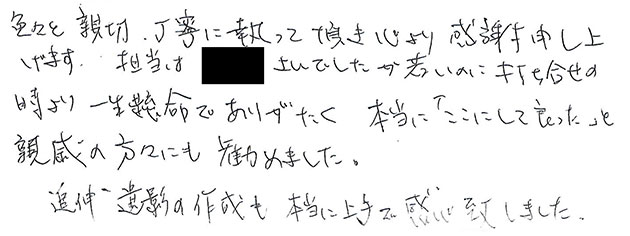 色々と親切、丁寧に執って頂き心より感謝申し上
げます。担当は さんでしたが若いのに打ち合せの
時より一生懸命でありがたく 本当に「ここにして良かった」と
親戚の方々にも勧めました。
追伸 遺影の作成も 本当に上手で感 致しました。